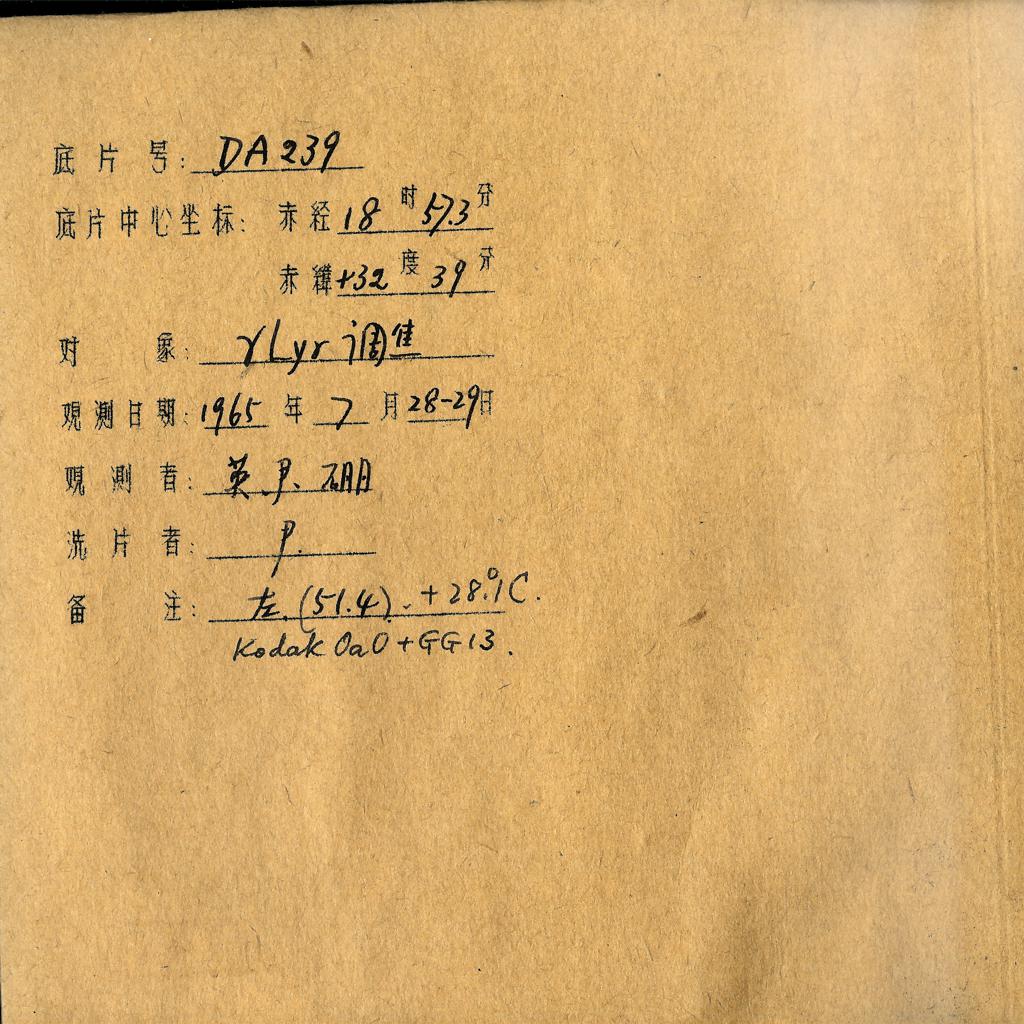 底片号: DA239
底片中心坐标: 赤经 18时 57.3分
赤纬 +32度 39分
对象: γLyr 调焦
观测日期: 1965年 7月 28-29日
观测者: 英.尹.硼
洗片者: 尹.
备注: 左.(51.4). +28.°1C.
Kodak OaO+GG13.